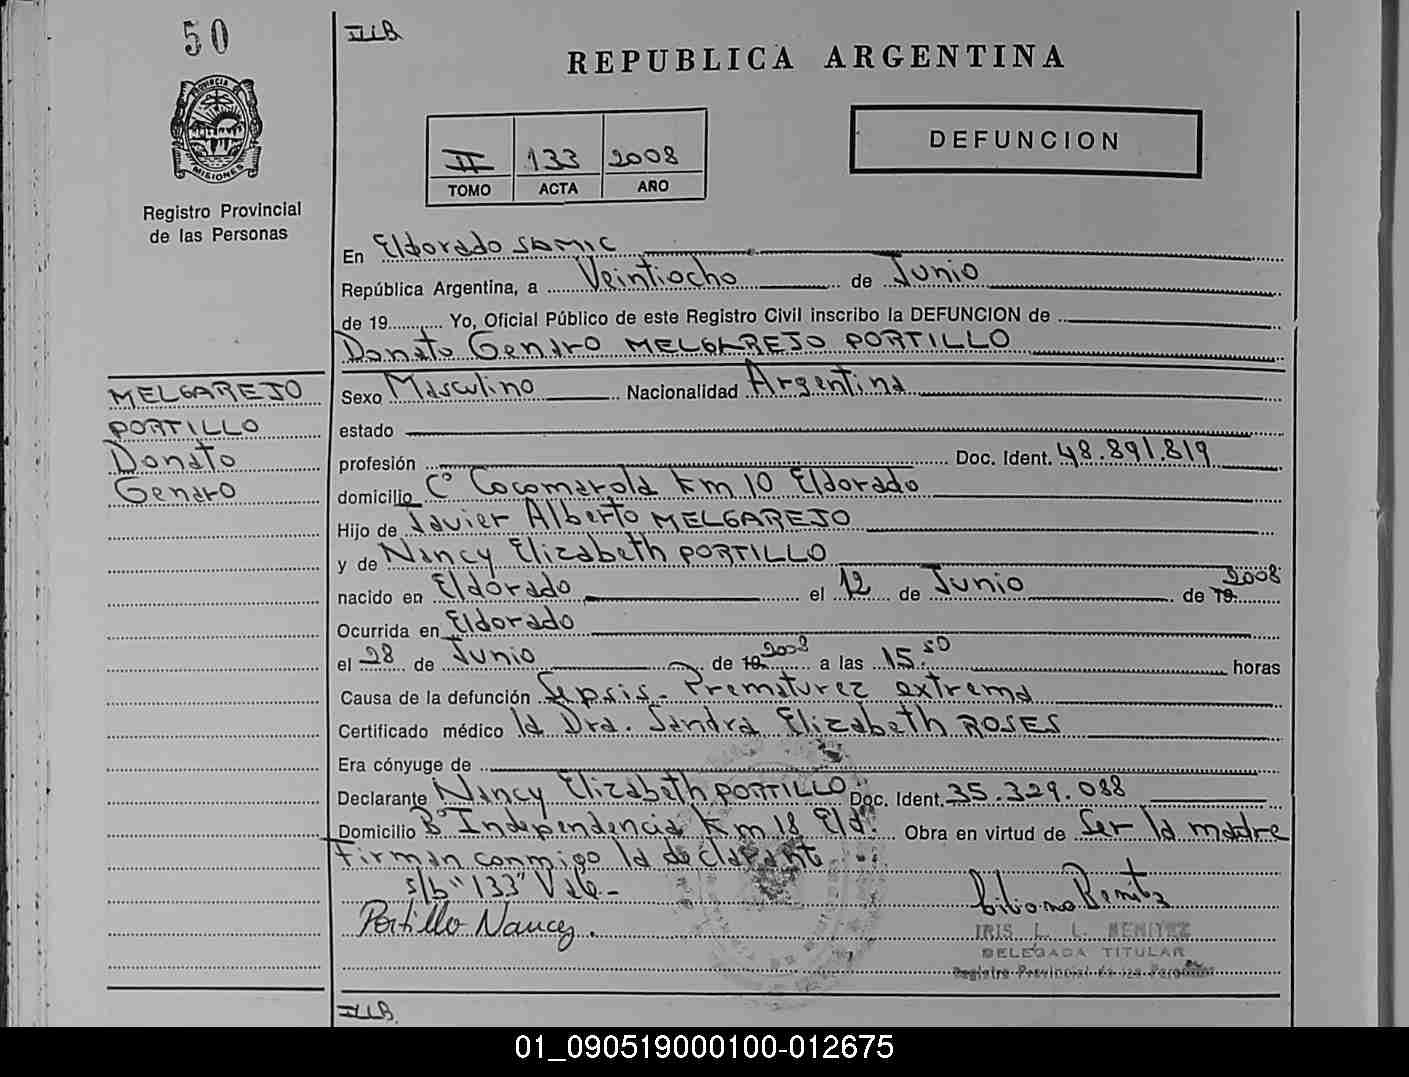 50
IIB
REPUBLICA ARGENTINA
PROVINCIA DE
MISIONES
II 133 2008
TOMO ACTA AÑO
DEFUNCION
Registro Provincial
de las Personas
En Eldorado SAMIC
República Argentina, a Veintiocho de Junio
de 19 Yo, Oficial Público de este Registro Civil inscribo la DEFUNCION de
Donato Genaro MELGAREJO PORTILLO
MELGAREJO
PORTILLO
Donato
Genaro
Sexo Masculino Nacionalidad Argentina
estado
profesión Doc. Ident. 48.891.819
domicilio Cº Cocomarola Km 10 Eldorado
Hijo de Javier Alberto MELGAREJO
y de Nancy Elizabeth PORTILLO
nacido en Eldorado el 12 de Junio de 19 2008
Ocurrida en Eldorado
el 28 de Junio de 19 2008 a las 15.50 horas
Causa de la defunción Sepsis - Prematurez extrema
Certificado médico la Dra. Sandra Elizabeth ROSES
Era cónyuge de
Declarante Nancy Elizabeth PORTILLO Doc. Ident. 35.329.088
Domicilio Bº Independencia Km 18 Eld. Obra en virtud de Ser la madre
Firman conmigo la declarante
s/b "133" Vale-
Portillo Nancy.
IRIS L. L. BENITEZ
DELEGADA TITULAR
Registro Provincial de las Personas
01_090519000100-012675